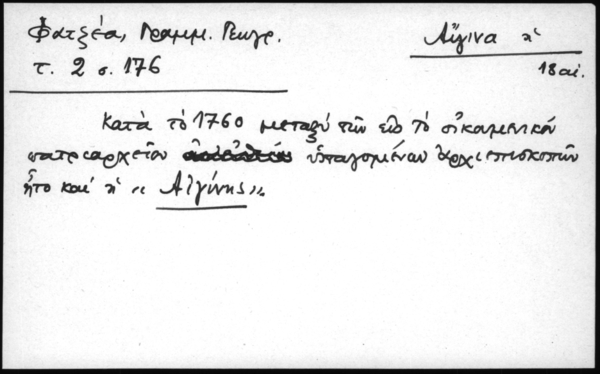 Φατζέα, Γραμμ. Γεωγρ.
Αἴγινα ἡ
τ. 2 σ. 176
18 αἰ.
Κατὰ τὸ 1760 μεταξὺ τῶν εἰς τὸ οἰκουμενικόν
πατριαρχεῖον ὑπαγομένων ἀρχιεπισκοπῶν
ἦτο καί ἡ « Αἰγίνης».